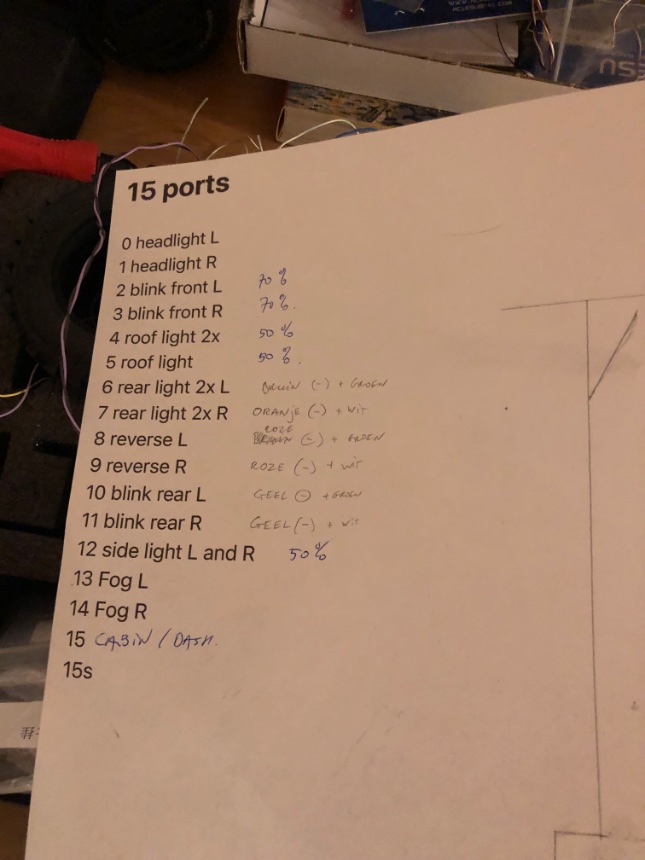 15 ports
0 headlight L
1 headlight R
2 blink front L 70 %
3 blink front R 70 %.
4 roof light 2x 50 %
5 roof light 50 %.
6 rear light 2x L BRUIN (-) + GROEN
7 rear light 2x R ORANJE (-) + WIT
8 reverse L ROZE (-) + GROEN
9 reverse R ROZE (-) + WIT
10 blink rear L GEEL (-) + GROEN
11 blink rear R GEEL (-) + WIT
12 side light L and R 50 %
13 Fog L
14 Fog R
15 CABIN / DASH.
15s